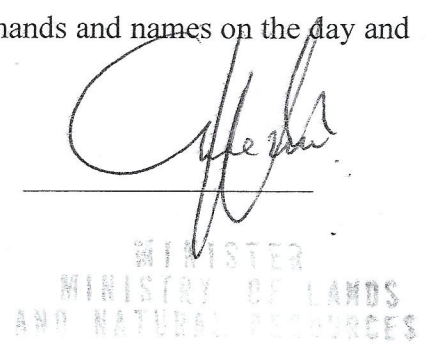 hands and names on the day and
MINISTER
MINISTRY OF LANDS
AND NATURAL RESOURCES